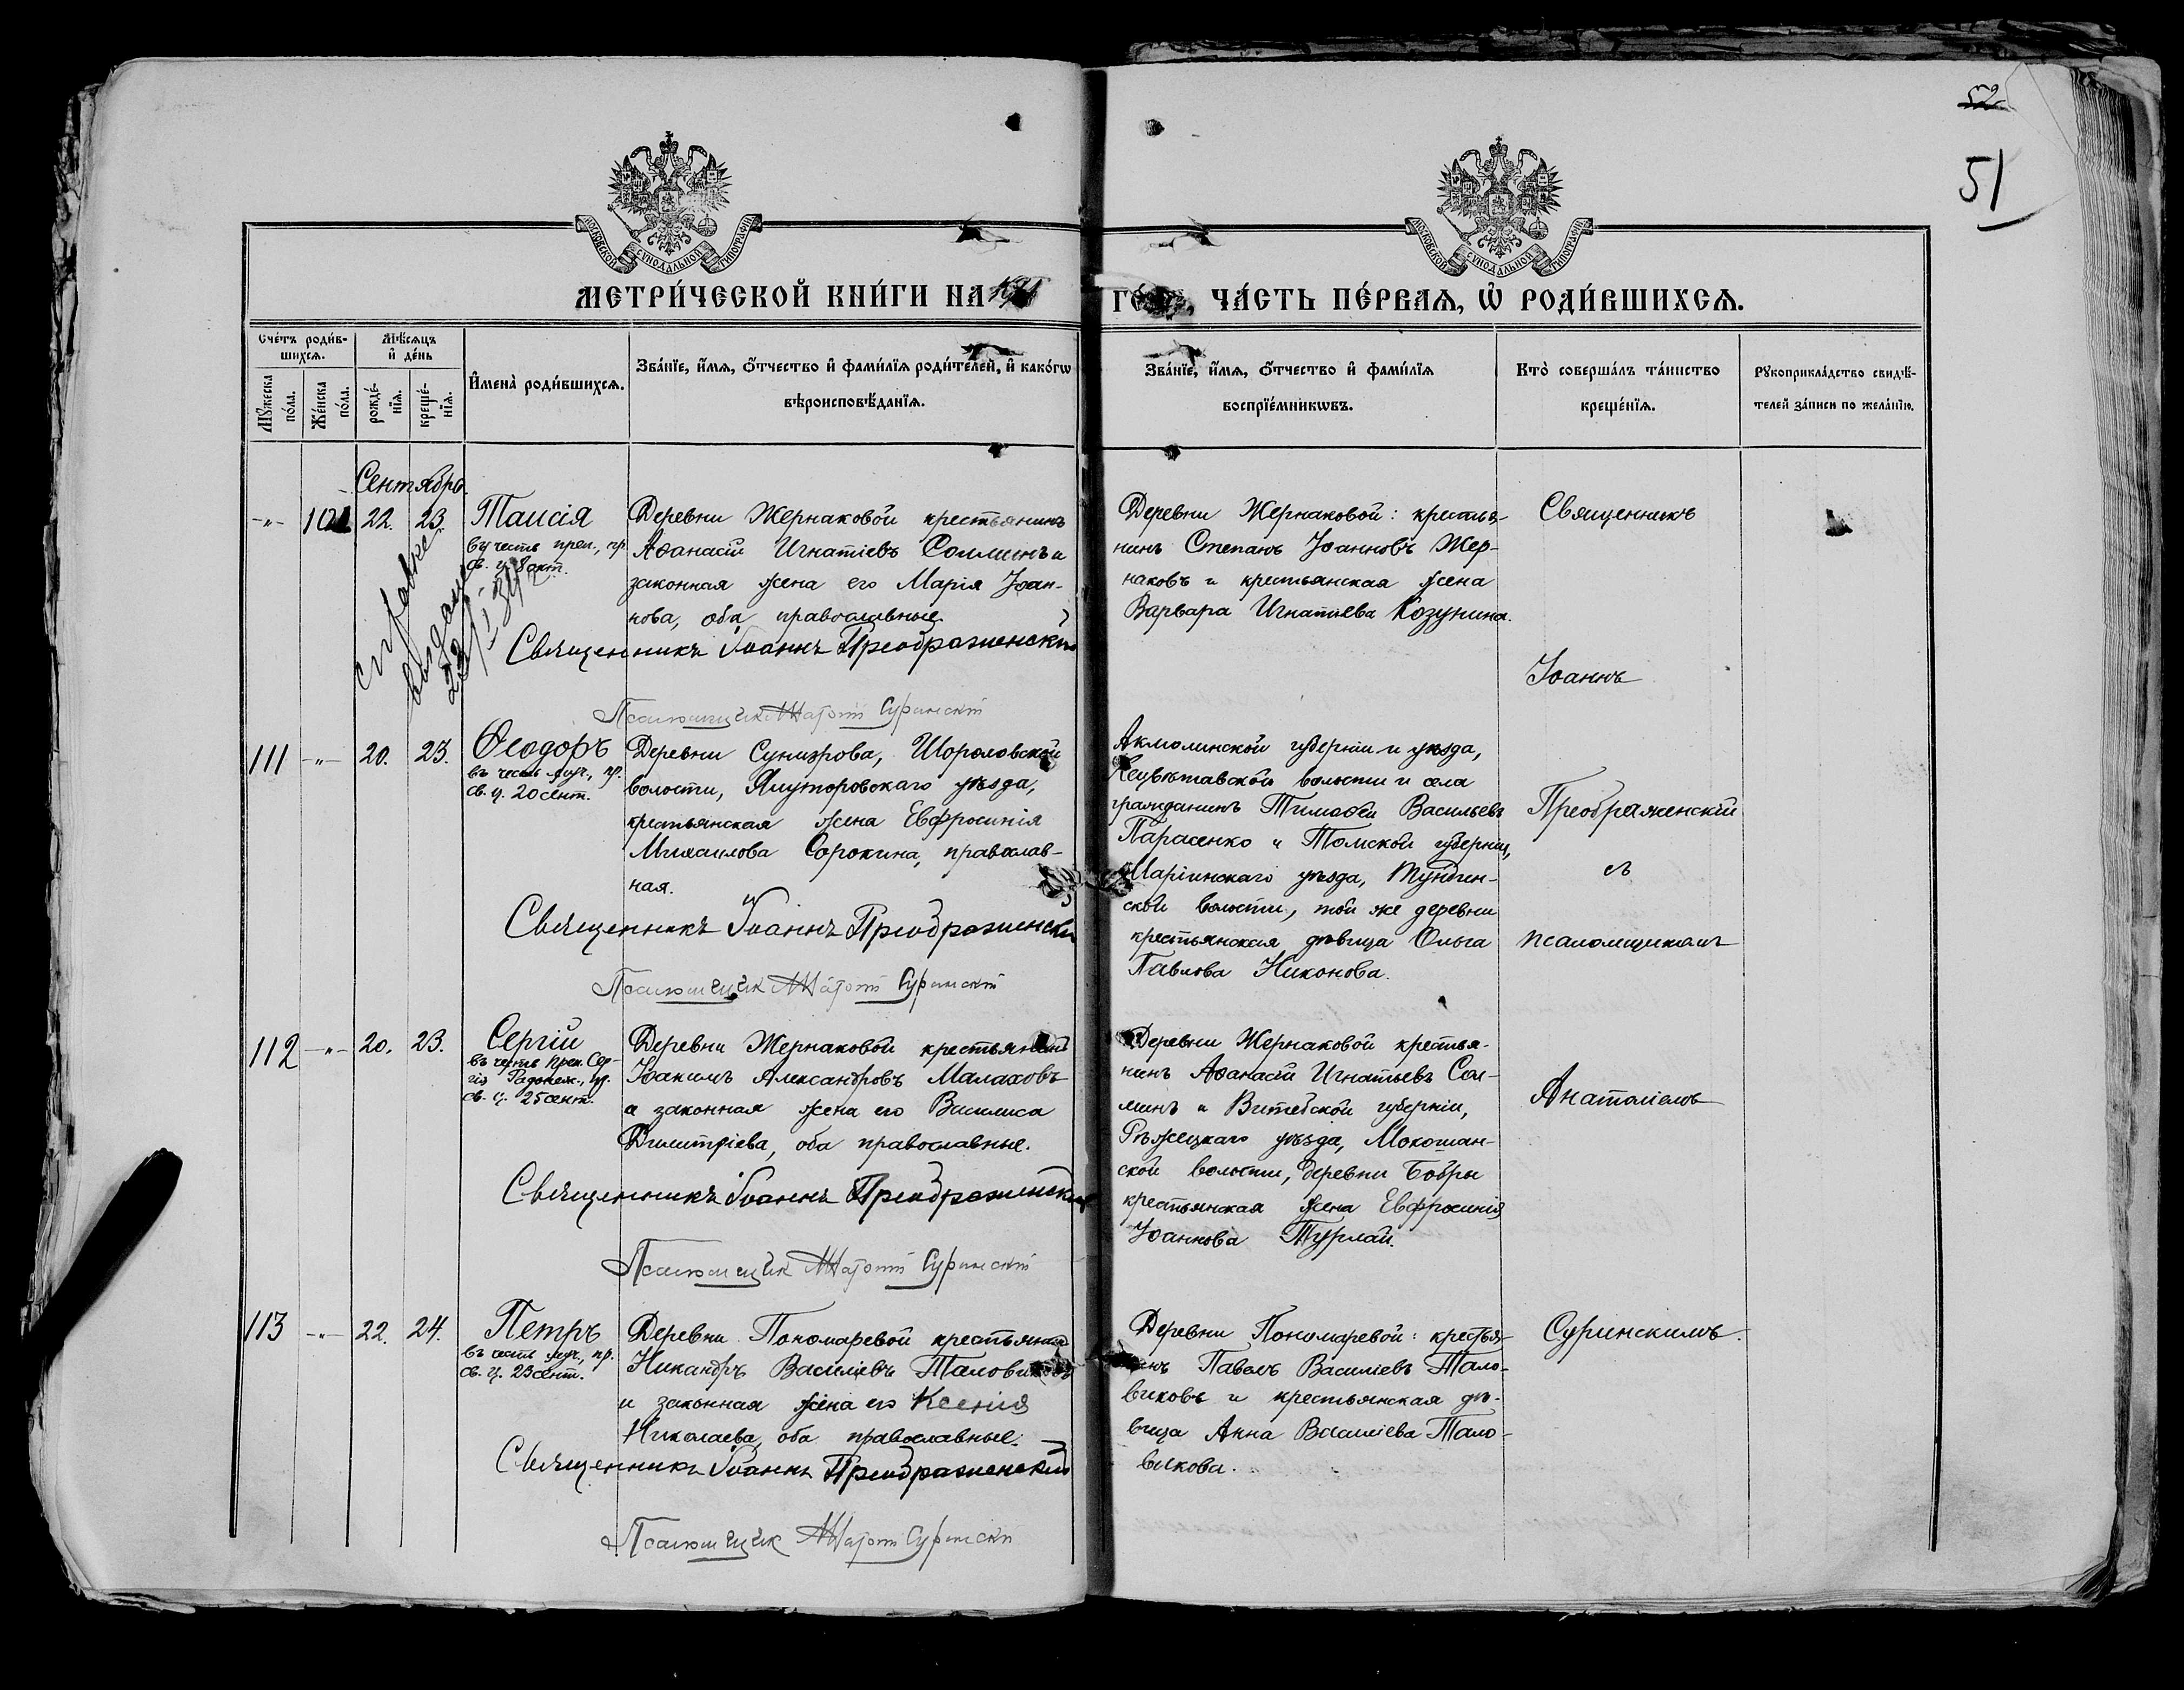 52
51
МОСКОВСКОЙ СУНОДАЛЬНОЙ ТИПОГРАФІИ
МОСКОВСКОЙ СУНОДАЛЬНОЙ ТИПОГРАФІИ
МЕТРИ́ЧЕСКОЙ КНИ́ГИ НА
ЧА́СТЬ ПЕ́РВАЯ, Ѡ҆ РОДИ́ВШИХСЯ.
Сче́тъ роди́в-
шихся.
Мѣ́сяцъ
и҆ де́нь
Мꙋ́жеска
по́ла.
Же́нска
по́ла.
рожде́-
нїя.
креще́-
нїя.
И҆мена̀ роди́вшихся.
Зва́нїе, и҆́мя, ѻ҆́тчество и҆ фами́лїя роди́телей, и҆ како́гѡ
вѣроисповѣ́данїя.
Зва́нїе, и҆́мя, ѻ҆́тчество и҆ фами́лїя
воспрїе́мникѡвъ.
Кто̀ соверша́лъ та́инство
креще́нїя.
Рꙋкоприкла́дство свидѣ́-
телей за́писи по жела́нїю.
Сентябрь.
-"- 101 22. 23. Таисія
въ честь преп., пр.
св. ц. 8 окт.
Деревни Жернаковой крестьянинъ
Аѳанасій Игнатіевъ Соминъ и
законная жена его Марія Іоан-
нова, оба православные.
Священникъ Іоаннъ Преображенскій
Псаломщик Анатолій Суринскій
Деревни Жернаковой: крестья-
нинъ Степанъ Іоанновъ Жер-
наковъ и крестьянская жена
Варвара Игнатіева Козунина.
Священникъ
Іоаннъ
справка
выдана
111 -"- 20. 23. Ѳеодоръ
въ честь муч., пр.
св. ц. 20 сент.
Деревни
волости, Ялуторовскаго уѣзда,
крестьянская жена Евфросинія
Михаилова Сорокина, православ-
ная.
Священникъ Іоаннъ Преображенскій
Псаломщик Анатолій Суринскій
Акмолинской губерніи и уѣзда,
волости и села
гражданинъ Тимоѳей Васильевъ
Парасенко и Томской губерніи,
Маріинскаго уѣзда,
ской волости, той же деревни
крестьянская дѣвица Ольга
Павлова Никонова.
Преображенскій
съ
псаломщикомъ
112 -"- 20. 23. Сергій
въ честь преп. Сер-
гія Радонеж., пр.
св. ц. 25 сент.
Деревни Жернаковой крестьянинъ
Іоакимъ Александровъ Малаховъ
и законная жена его Василиса
Димитріева, оба православные.
Священникъ Іоаннъ Преображенскій
Псаломщик Анатолій Суринскій
Деревни Жернаковой крестья-
нинъ Аѳанасій Игнатьевъ Со-
минъ и Витебской губерніи,
Рѣжецкаго уѣзда, Макашан-
ской волости, деревни Бобры
крестьянская жена Евфросинія
Іоаннова Турлай.
Анатоліемъ
113 -"- 22. 24. Петръ
въ честь муч., пр.
св. ц. 23 сент.
Деревни Пономаревой крестьянинъ
Никандръ Василіевъ Таловиковъ
и законная жена его Ксенія
Николаева, оба православные.
Священникъ Іоаннъ Преображенскій
Псаломщик Анатолій Суринскій
Деревни Пономаревой: крестья-
нинъ Павелъ Василіевъ Тало-
виковъ и крестьянская дѣ-
вица Анна Василіева Тало-
викова.
Суринскимъ.